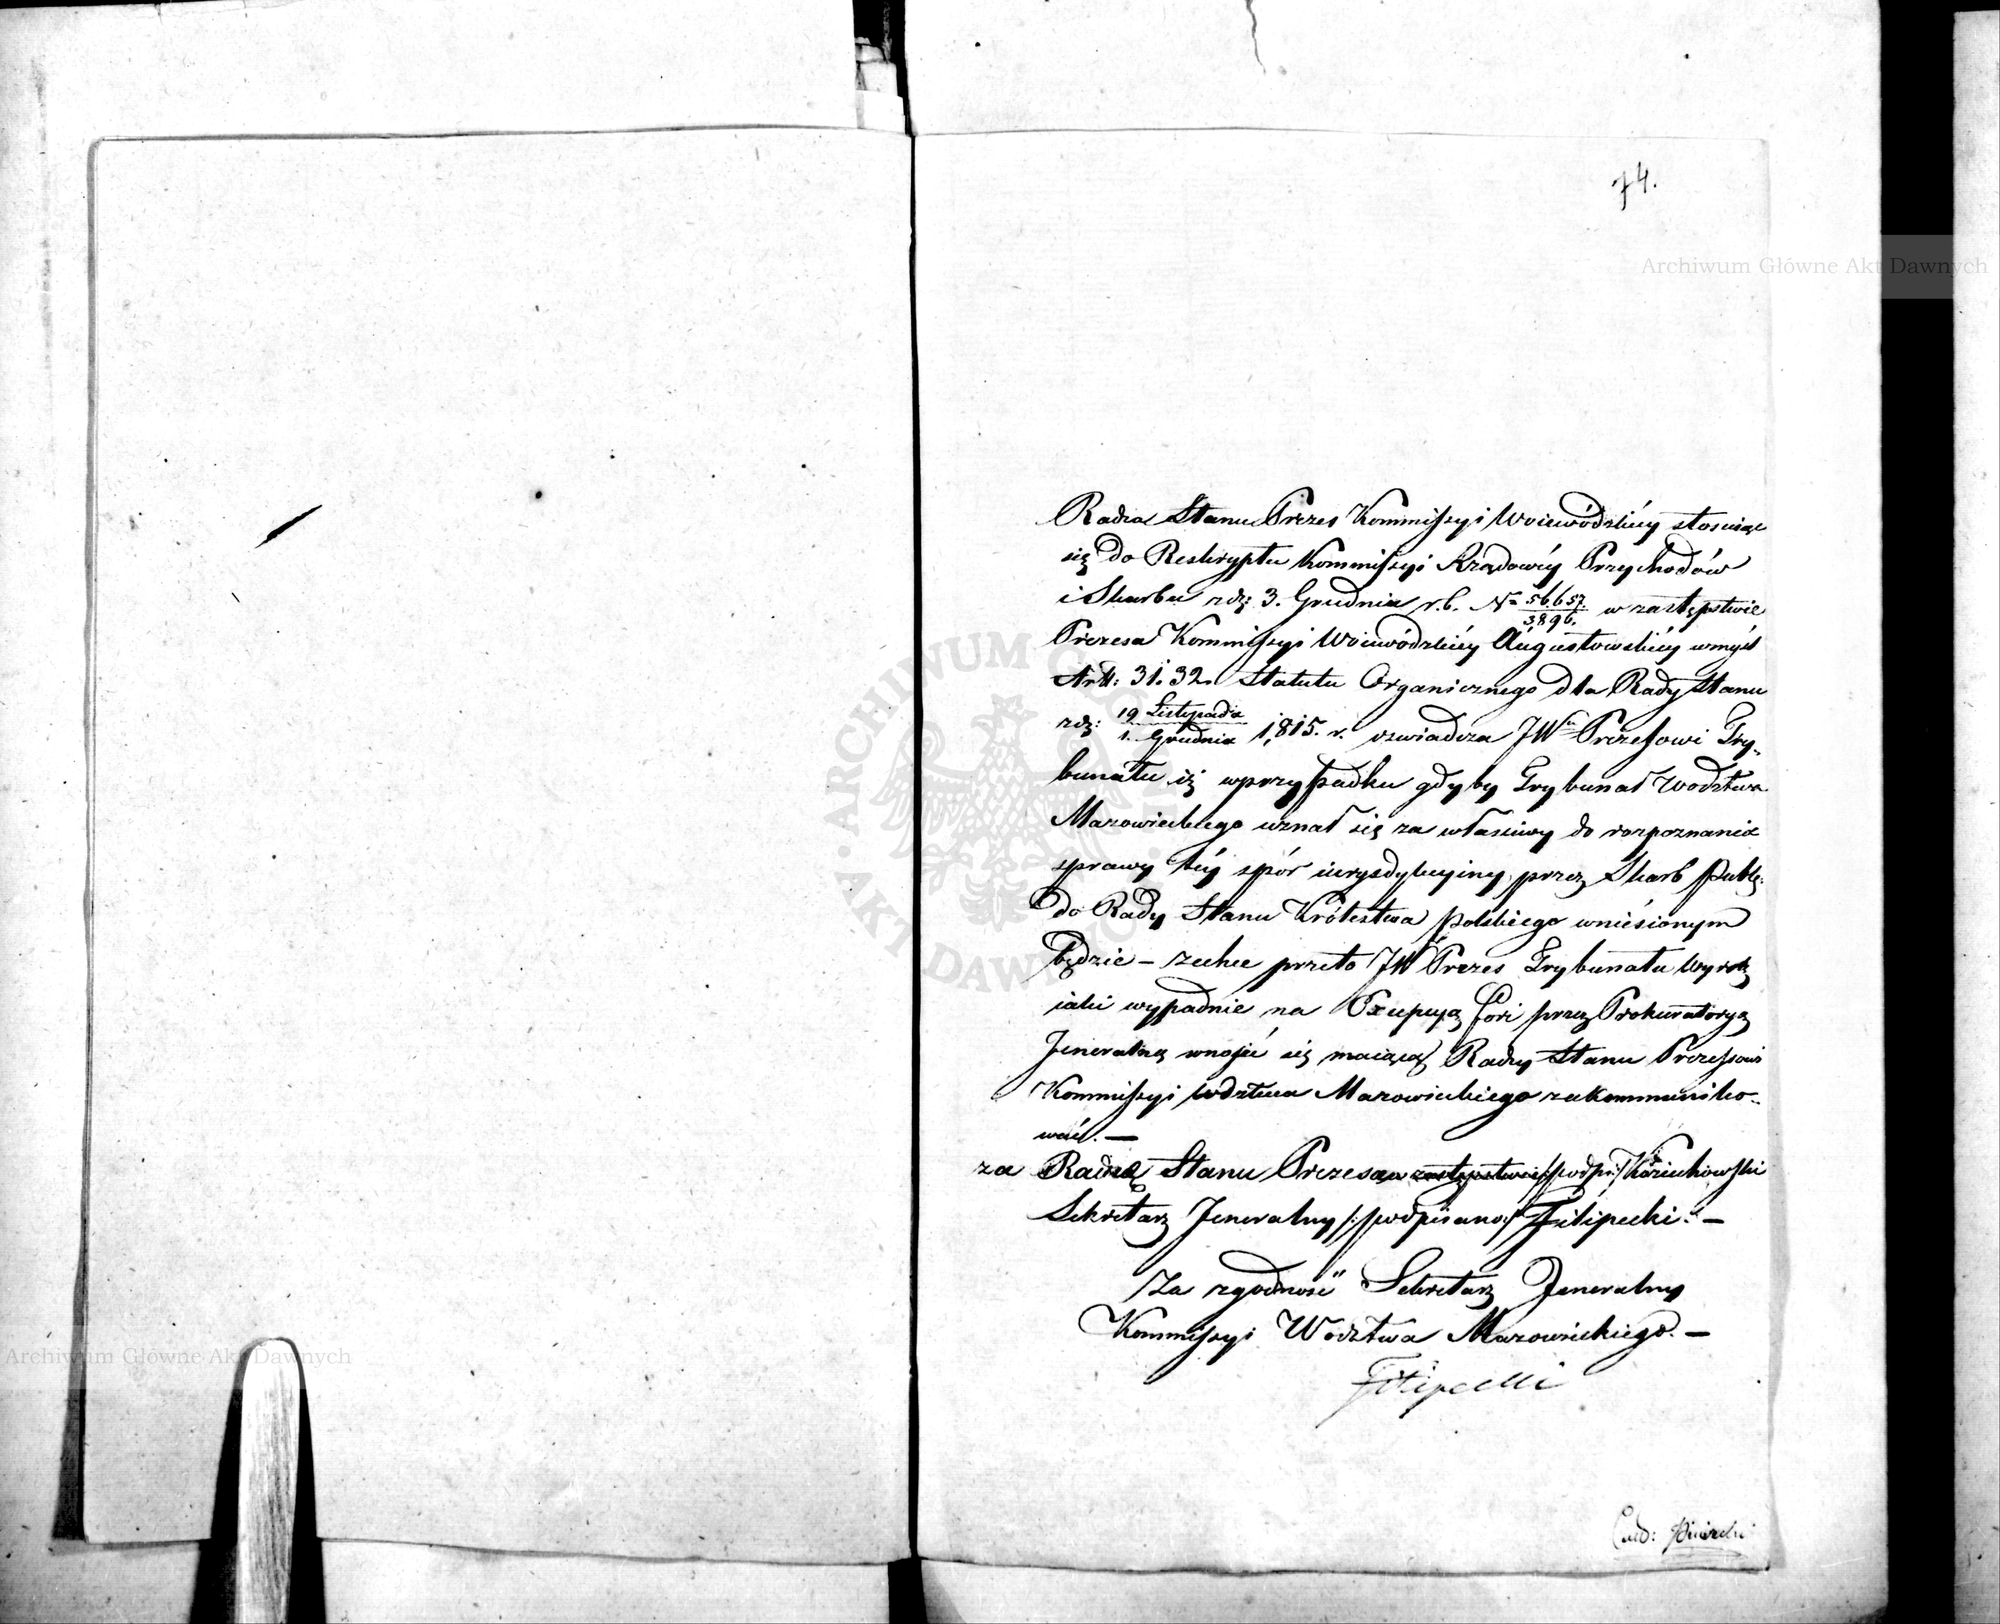 74.
Archiwum Główne Akt Dawnych
Radca Stanu Prezes Kommissyi Woiewódzkiéy stosuiąc
się do Reskryptu Kommissyi Rządowéy Przychodów
i Skarbu z dz: 3. Grudnia r. b. No 56,657./3,896. w zastępstwie
Prezesa Kommissyi Woiewódzkiéy Augustowskiéy wmyśl
Artt: 31. 32. Statutu Organicznego dla Rady Stanu
z dz: 19 Listopada/1. Grudnia 1,815. r. oswiadcza JWu Prezesowi Try„
bunału iż wprzypadku gdyby Trybunał Wodztwa
Mazowieckiego uznał się za własciwy do rozpoznania
sprawy téy spór iurysdykcyiny przez Skarb Publ:
do Rady Stanu Królestwa Polskiego wniesionym
będzie – zechce przeto JW Prezes Trybunału Wyrok
iaki wypadnie na Excepcyą fori przez Prokuratoryą
Jeneralną wnosić się maiącą Radcy Stanu Prezesowi
Kommissyi Wodztwa Mazowieckiego zakommuniko„
wać. —
za Radcę Stanu Prezesa w zastępstwie /:podp:/ Kożuchowski
Sekretarz Jeneralny /:podpisano:/ Filipecki. —
Za zgodność Sekretarz Jeneralny
Kommissyi Wodztwa Mazowieckiego. —
Filipecki
ARCHIWUM GŁÓWNE AKT DAWNYCH
Archiwum Główne Akt Dawnych